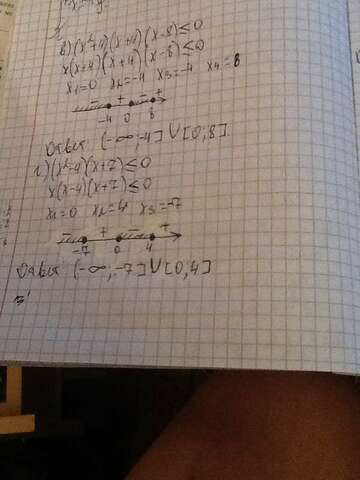 в) (x²+4)(x+4)(x-8)≤0
x(x+4)(x+4)(x-8)≤0
x₁=0 x₂=-4 x₃=-4 x₄=8
- + - +
-4 0 8
Ответ (-∞;-4]∪[0;8].
г) (x²-4)(x+7)≤0
x(x-4)(x+7)≤0
x₁=0 x₂=4 x₃=-7
- + - +
-7 0 4
Ответ (-∞;-7]∪[0;4]